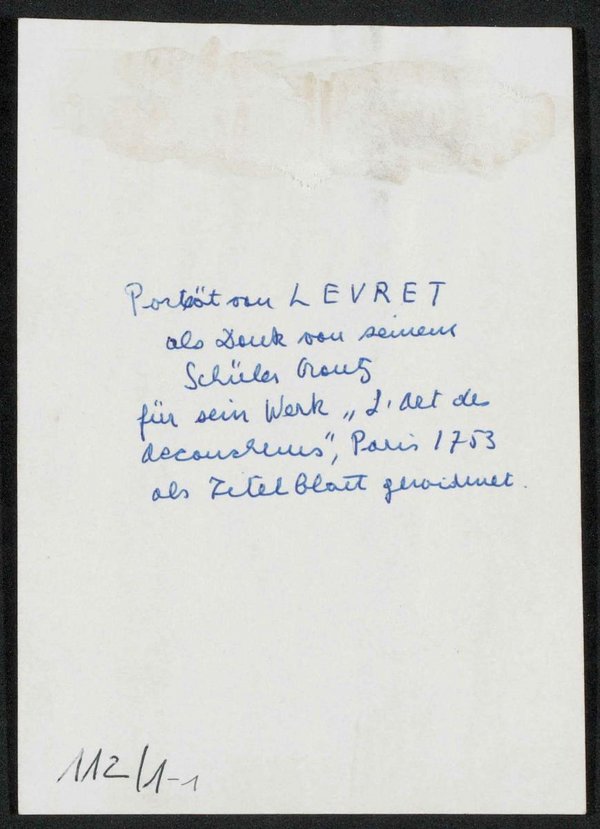 Porträt von LEVRET
als Dank von seinem
Schüler Crantz
für sein Werk „L'art des
accouchemens", Paris 1753
als Titelblatt gewidmet.
112/1-1